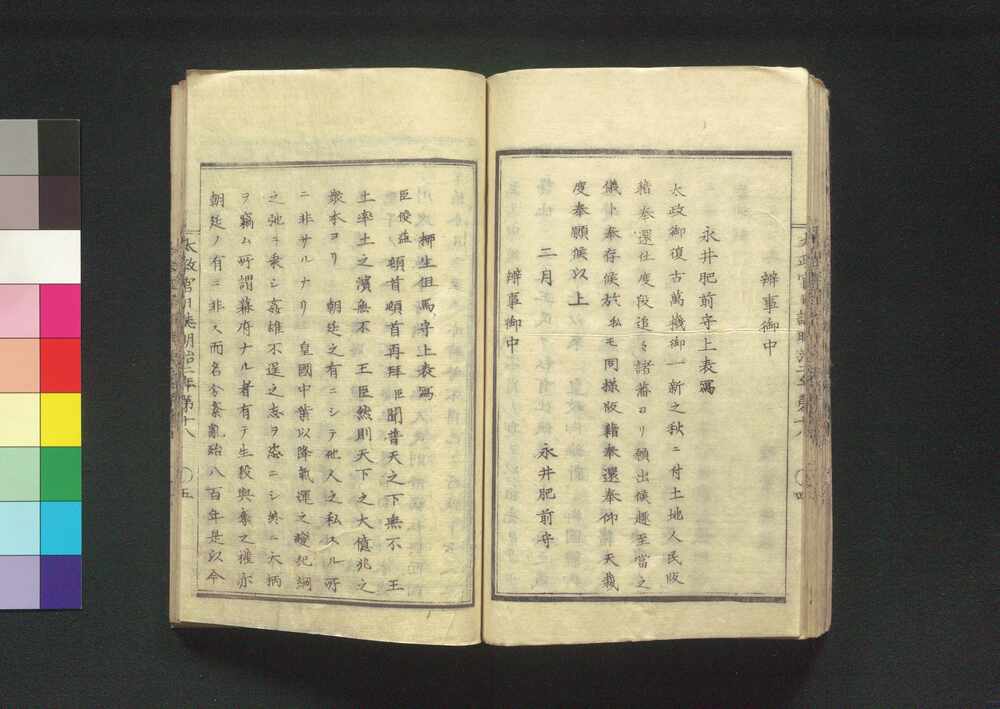 辨事御中
永井肥前守上表寫
太政御復古萬機御一新之秋ニ付土地人民版
籍奉還仕度段追々諸藩ヨリ願出候趣至當之
儀ト奉存候故私モ同樣版籍奉還奉仰 天裁
度奉願候以上
二月 永井肥前守
辨事御中
太政官日誌明治二年第十八 〇四
柳生但馬守上表寫
臣俊益頓首頓首再拜臣聞普天之下無不 王
土率土之濱無不 王臣然則天下之大億兆之
衆本ヨリ 朝廷之有ニシテ他人之私スル所
ニ非サルナリ 皇國中葉以降氣運之變紀綱
之弛キ乘シ姦雄不逞之志ヲ恣ニシ終ニ大柄
ヲ竊ム所謂幕府ナル者有テ生殺與奪之權亦
朝廷ノ有ニ非ス而名分紊亂殆八百年是以今
太政官日誌明治二年第十八 〇五